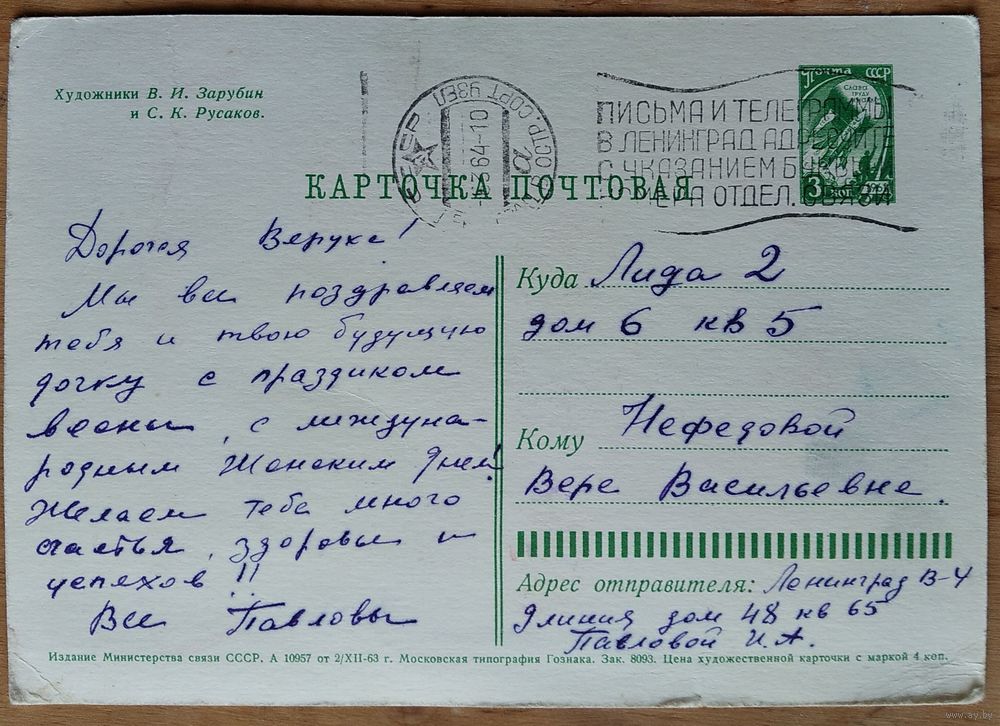 Художники В. И. Зарубин
и С. К. Русаков.
почта СССР
СЛАВА ТРУДУ
3 коп
ПИСЬМА И ТЕЛЕГРАММЫ
В ЛЕНИНГРАД АДРЕСУЙТЕ
С УКАЗАНИЕМ БУКВЫ
НОМЕРА ОТДЕЛ. СВЯЗИ
64-10
СОРТ. УЗЕЛ
КАРТОЧКА ПОЧТОВАЯ
Дорогая Верука!
Мы все поздравляем
тебя и твою будущую
дочку с праздником
весны, с междуна-
родным Женским днем!
Желаем тебе много
счастья, здоровья и
успехов!!
Все Павловы
Куда Лида 2
дом 6 кв 5
Кому Нефедовой
Вере Васильевне.
Адрес отправителя: Ленинград В-4
9 линия дом 48 кв 65
Павловой И. А.
Издание Министерства связи СССР. А 10957 от 2/XII-63 г. Московская типография Гознака. Зак. 8093. Цена художественной карточки с маркой 4 коп.
www.ay.by